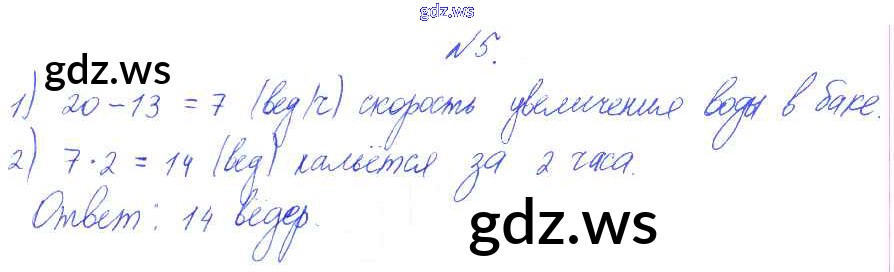 gdz.ws
N 5.
gdz.ws
1) 20 - 13 = 7 (вед/ч) скорость увеличения воды в баке.
2) 7 · 2 = 14 (вед) нальётся за 2 часа.
Ответ: 14 вёдер.
gdz.ws